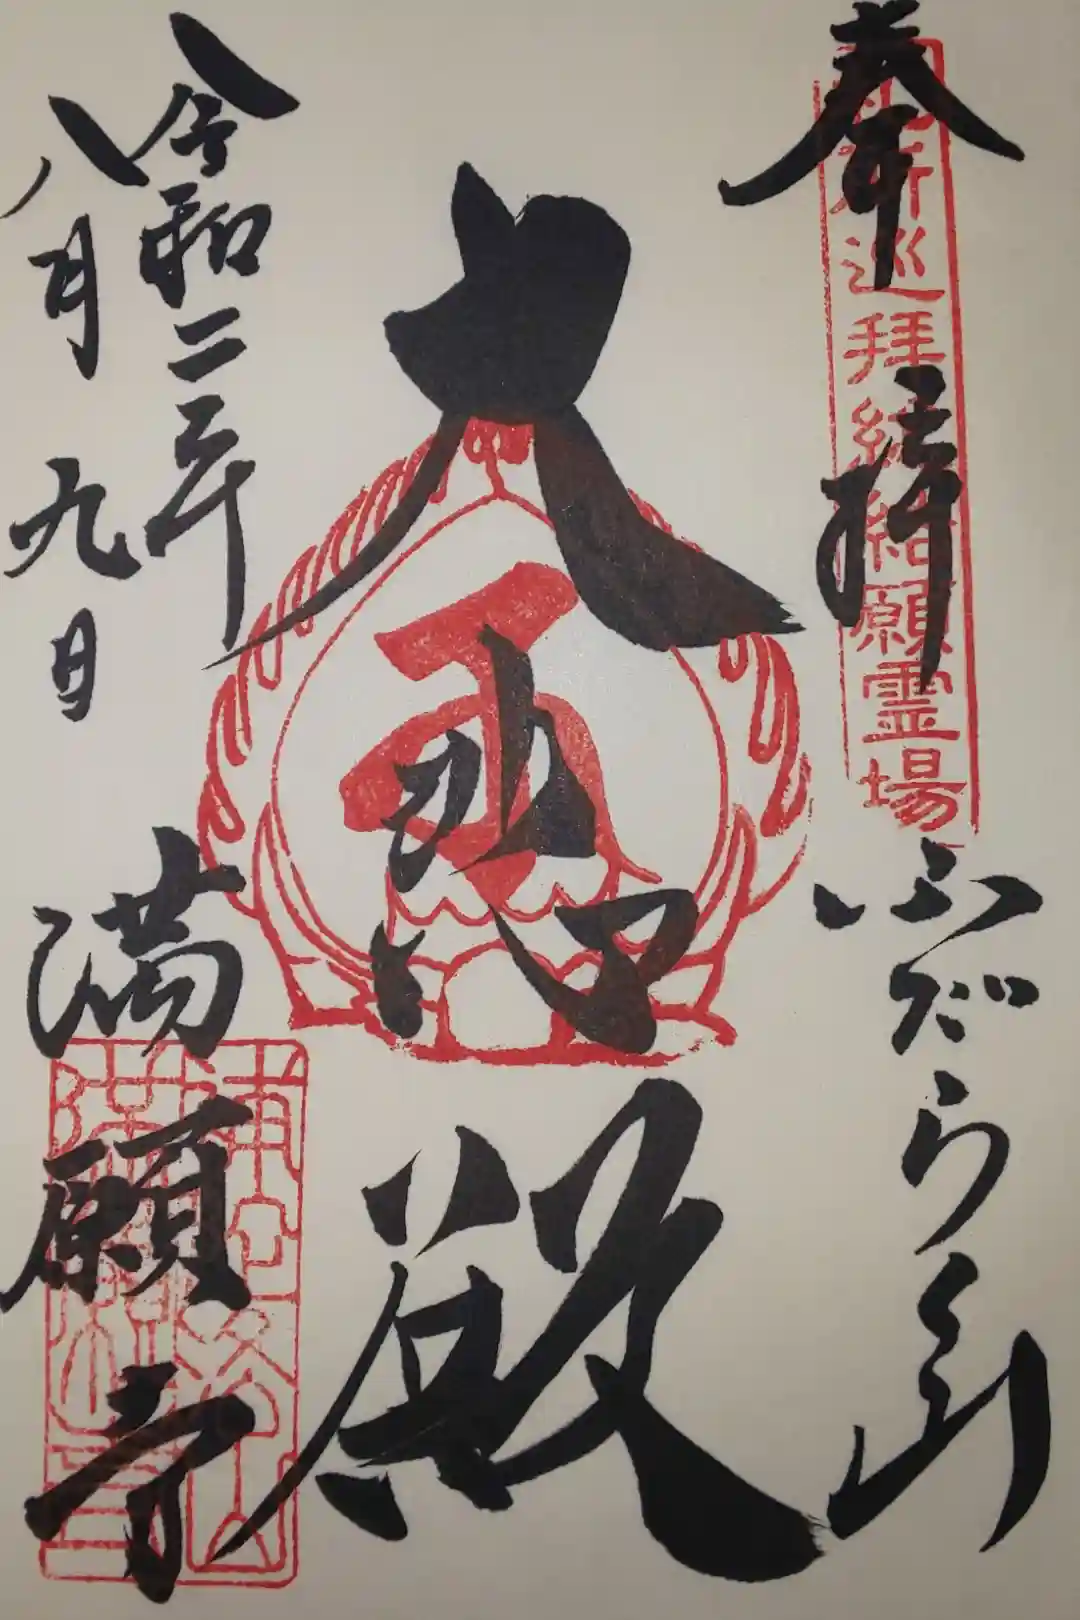 奉拝
巡拝結願霊場
ふだらく山
大悲殿
令和二年
八月九日
満願寺